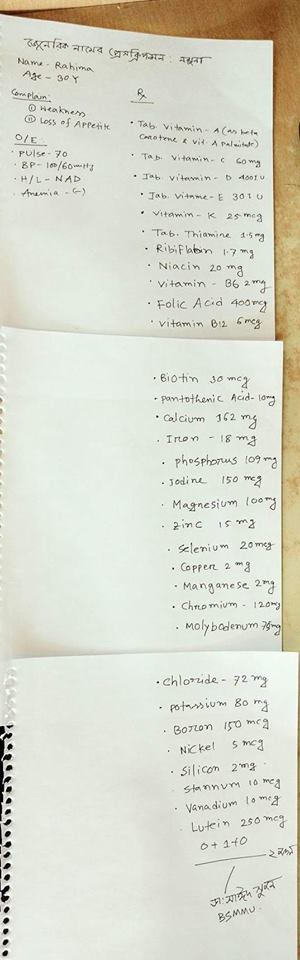 জেনেরিক নামের প্রেসক্রিপশন : নমুনা
Name - Rahima
Age - 30Y
Complain:
(i) Weakness
(ii) Loss of Appetite
O/E:
• Pulse - 70
• BP - 100/60mmHg
• H/L - NAD
• Anemia - (-)
Rx
• Tab. Vitamin - A (as beta
carotene & vit. A Palmitate)
• Tab. Vitamin - C 60mg
• Tab. Vitamin - D 400IU
• Tab. Vitamine - E 30IU
• Vitamin - K 25mcg
• Tab. Thiamine 1.5mg
• Ribiflabin 1.7mg
• Niacin 20 mg
• Vitamin - B6 2mg
• Folic Acid 400mcg
• Vitamin B12 6mcg
• Biotin 30 mcg
• Pantothenic Acid - 10mg
• Calcium 162 mg
• Iron - 18 mg
• Phosphorus 109 mg
• Iodine 150 mcg
• Magnesium 100mg
• Zinc 15 mg
• Selenium 20mcg
• Copper 2 mg
• Manganese 2mg
• Chromium - 120mg
• Molybodenum 75mg
• Chloride - 72 mg
• Potassium 80 mg
• Boron 150 mcg
• Nickel 5 mcg
• Silicon 2mg
• Stannum 10 mcg
• Vanadium 10 mcg
• Lutein 250 mcg
0 + 1 + 0
BSMMU